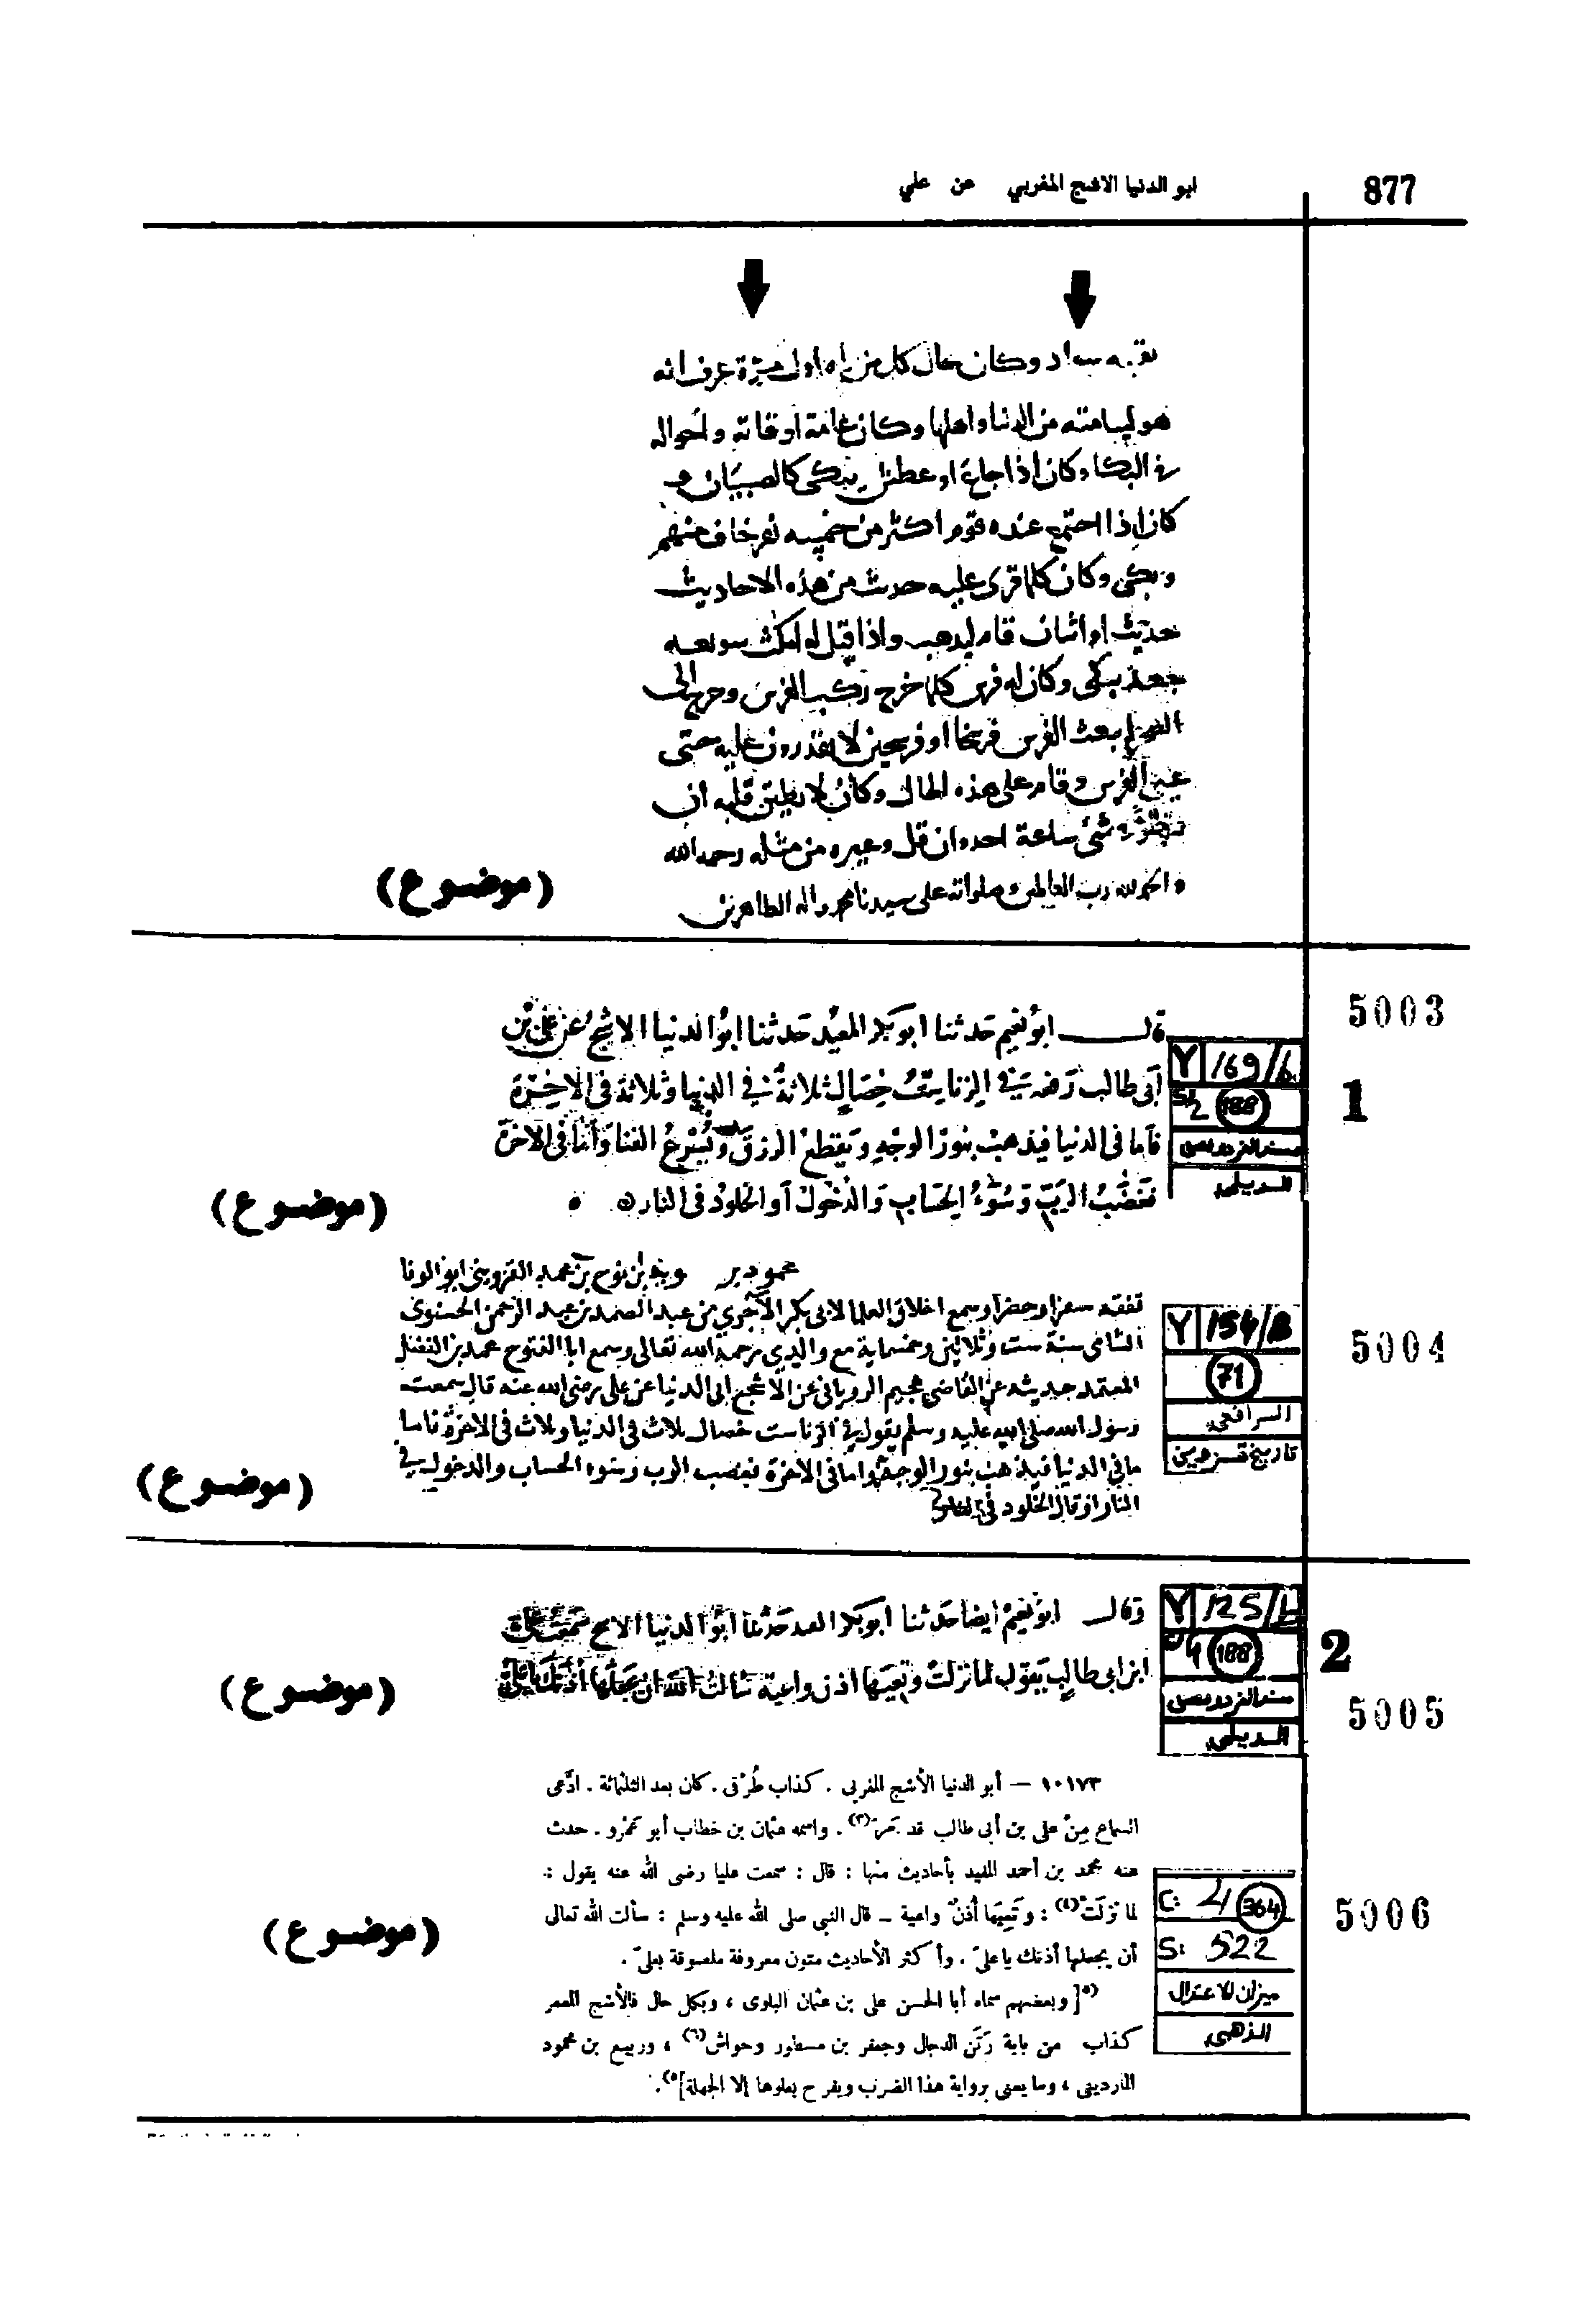 877
ابو الدنيا الاشج المغربي عن علي
وكان حال كل من اول مرة عرف انه
هو من الدنيا واهلها وكان عامة اوقاته واحواله
في البكا وكان اذا جاع او عطش يبكي كالصبيان و
كان اذا اجتمع عنده قوم اكثر من خمسه نفر خاف منهم
ويبكي وكان كلما قرى عليه حديث من هذه الاحاديث
حديث او اثنان قام ليذهب واذا قيل له امكث سويعه
جعل يبكي وكان له فرس كلما خرج ركب الفرس وخرج الى
بعث الفرس فرسخا او فرسخين لا يقدرون عليه حتى
الفرس وقام على هذه الحال وكان لا يطيق قلبه ان
شي ساعة احد وان قل وغيره من مثله رحمه الله
والحمد لله رب العالمين وصلواته على سيدنا محمد واله الطاهرين
(موضوع)
5003
1
Y 169/b
S/2 188
مسند الفردوس
الديلمي
قال ابو نعيم حدثنا ابو بكر المفيد حدثنا ابو الدنيا الاشج عن علي بن
ابى طالب رضه في الزنا ست خصال ثلاثة في الدنيا وثلاثة فى الاخرة
فاما فى الدنيا فيذهب بنور الوجه ويقطع الرزق ويسرع الفنا وأما فى الاخرة
فغضب الرب وسوء الحساب والدخول أو الخلود فى النار
(موضوع)
5004
Y 154/B
71
الرافعي
تاريخ قزوين
بن نوح بن محمد القزويني ابو الوفا
تفقه سفرا وحضرا وسمع اخلاق العلما لابى بكر الآجري من عبد الصمد بن عبد الرحمن الحسنوى
سنة ست وثلاثين وخمسماية مع والدي رحمه الله تعالى وسمع ابا الفتوح محمد بن الفضل
حديثه عن القاضي الروياني عن الاشج ابى الدنيا عن على رضى الله عنه قال سمعت
رسول الله صلى الله عليه وسلم يقول في الزنا ست خصال ثلاث فى الدنيا وثلاث فى الاخرة فاما
ما في الدنيا فيذهب بنور الوجه واما فى الاخرة فغضب الرب وسوء الحساب والدخول في
النار او قال الخلود في النار
(موضوع)
2
5005
Y 125/b
188
مسند الفردوس
الديلمي
وقال ابو نعيم ايضا حدثنا ابو بكر المفيد حدثنا ابو الدنيا الاشج سمعت علي
ابن ابى طالب يقول لما نزلت وتعيها اذن واعية سالت الله ان يجعلها أذنك يا علي
(موضوع)
5006
C: 4 364
S: 522
ميزان الاعتدال
الذهبي
١٠١٧٣ – أبو الدنيا الأشج المغربى . كذاب طُرْقى . كان بعد الثلثمائة . ادّعى
السماع مِنْ على بن أبى طالب قد عمر(٣) . واسمه عثمان بن خطاب أبو عَمْرو . حدث
عنه محمد بن أحمد المفيد بأحاديث منها : قال : سمعت عليا رضى الله عنه يقول :
لما نزلَتْ(٤) : وتَعِيَها أُذنٌ واعية – قال النبي صلى الله عليه وسلم : سألت الله تعالى
أن يجعلها أذنك يا علىّ . وأكثر الأحاديث متون معروفة ملصوقة بعلىّ .
(٥[ وبعضهم سماه أبا الحسن على بن عثمان البلوى ، وبكل حال فالأشج المعمر
كذاب من بابة رَتَن الدجال وجعفر بن نسطور وخراش(٦) ، وربيع بن محمود
الماردينى ، وما يعنى برواية هذا الضرب ويفرح بعلوها إلا الجهلة]٥) .
(موضوع)